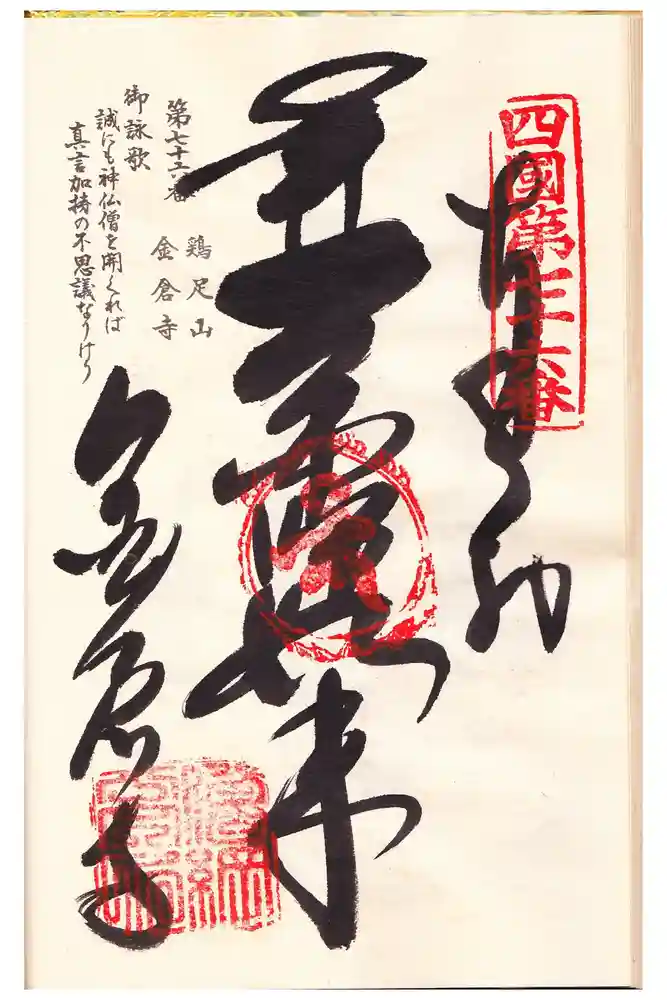 四國第七十六番
奉納
如来
第七十六番
鶏足山
金倉寺
御詠歌
誠にも神仏僧を開くれば
真言加持の不思議なりけり
金倉寺